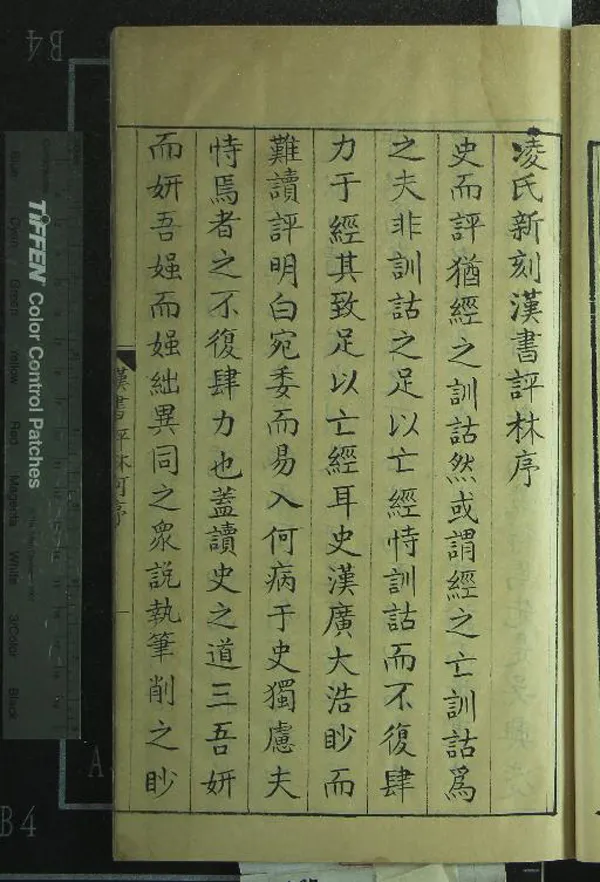 凌氏新刻漢書評林序
史而評猶經之訓詁然或謂經之亡訓詁爲
之夫非訓詁之足以亡經恃訓詁而不復肆
力于經其致足以亡經耳史漢廣大浩眇而
難讀評明白宛委而易入何病于史獨慮夫
恃焉者之不復肆力也蓋讀史之道三吾妍
而妍吾媸而媸絀異同之衆說執筆削之眇
漢書評林何序
一
B4
TIFFEN Color Control Patches
Cyan
Green
Yellow
Red
Magenta
White
3Color
Black
B4
A